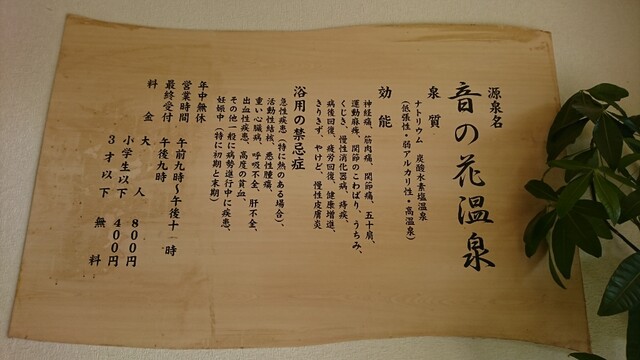 源泉名
音の花温泉
泉質
ナトリウム 炭酸水素塩温泉
(低張性・弱アルカリ性・高温泉)
効能
神経痛、筋肉痛、関節痛、五十肩、
運動麻痺、関節のこわばり、うちみ、
くじき、慢性消化器病、痔疾、
病後回復、疲労回復、健康増進、
きりきず、やけど、慢性皮膚炎
浴用の禁忌症
急性疾患(特に熱のある場合)、
活動性結核、悪性腫瘍、
重い心臓病、呼吸不全、肝不全、
出血性疾患、高度の貧血、
その他一般に病勢進行中に疾患、
妊娠中(特に初期と末期)
年中無休
営業時間 午前九時~午後十一時
最終受付 午後九時
料金 大人 800円
小学生以下 400円
3才以下 無料